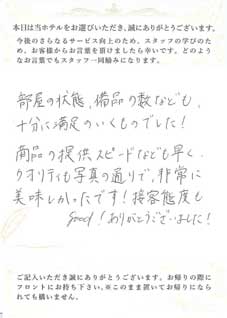 本日は当ホテルをお選びいただき、誠にありがとうございます。
今後のさらなるサービス向上のため、スタッフの学びのた
め、お客様からお言葉を頂けましたら幸いです。どのよう
なお言葉でもスタッフ一同励みになります。
部屋の状態、備品の数なども、
十分に満足のいくものでした！
商品の提供スピードなども早く、
クオリティも写真の通りで、非常に
美味しかったです！接客態度も
good！ありがとうございました！
ご記入いただき誠にありがとうございます。お帰りの際に
フロントにお持ち下さい。※このまま置いてお帰りになら
れても構いません。